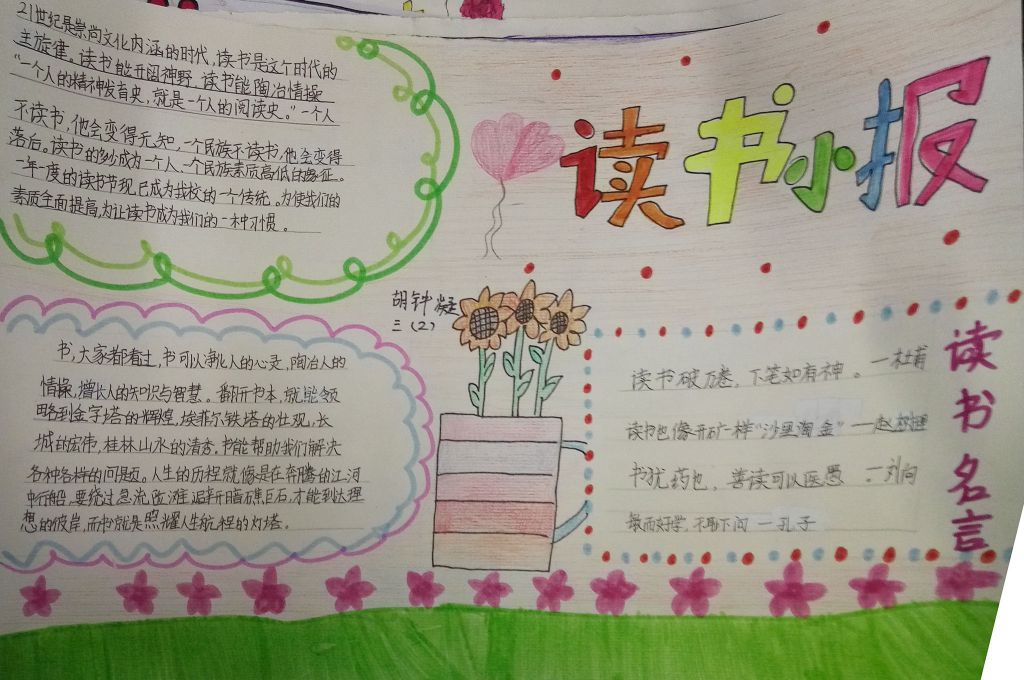 21世纪是崇尚文化内涵的时代,读书是这个时代的
主旋律。读书能开阔神野,读书能陶冶情操
“一个人的精神发育史,就是一个人的阅读史。”一个人
不读书,他会变得无知,一个民族不读书,他会变得
落后。读书的多少成为一个人、一个民族素质高低的象征。
一年一度的读书节现已成为我校的一个传统。为使我们的
素质全面提高,为让读书成为我们的一种习惯。
读书小报
胡钟凝
三(2)
书,大家都看过,书可以净化人的心灵,陶冶人的
情操,增长人的知识与智慧。翻开书本,就能领
略到金字塔的辉煌,埃菲尔铁塔的壮观,长
城的宏伟,桂林山水的清秀。书能帮助我们解决
各种各样的问题。人生的历程就像是在奔腾的江河
中行船,要绕过急流险滩避开暗礁巨石,才能到达理
想的彼岸,而书就是照耀人生航程的灯塔。
读书名言
读书破万卷,下笔如有神。一杜甫
读书也像开矿一样“沙里淘金”一赵树理
书犹药也,善读可以医愚 。一刘向
敏而好学,不耻下问 一孔子